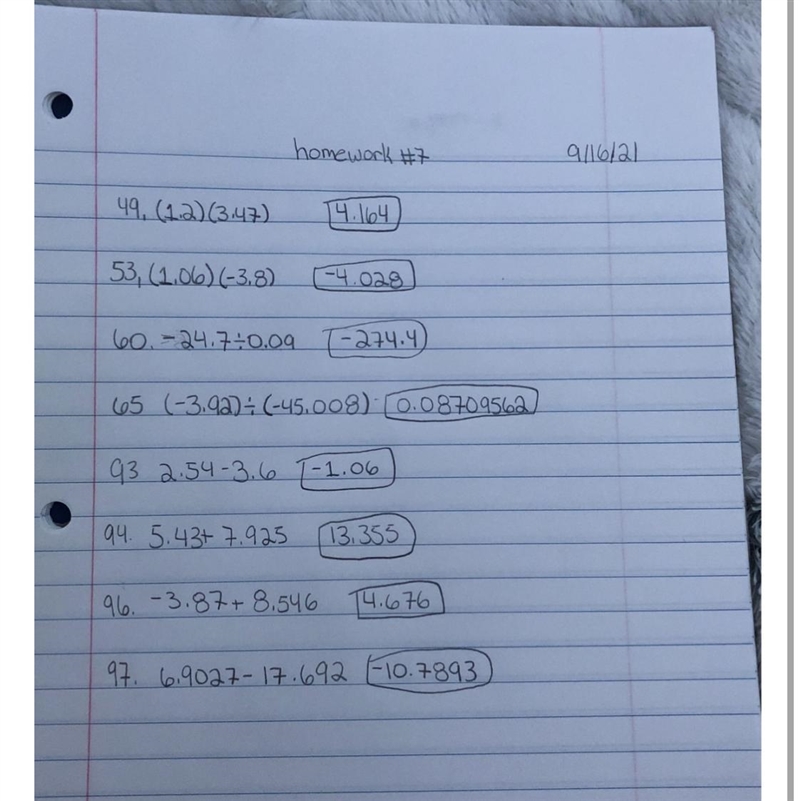 homework #7 9/16/21
49, (1.2)(3.47) 4.164
53, (1.06)(-3.8) -4.028
60. -24.7÷0.09 -274.4
65 (-3.92)÷(-45.008) 0.08709562
93 2.54-3.6 -1.06
94. 5.43+ 7.925 13.355
96. -3.87+ 8.546 4.676
97. 6.9027-17.692 -10.7893